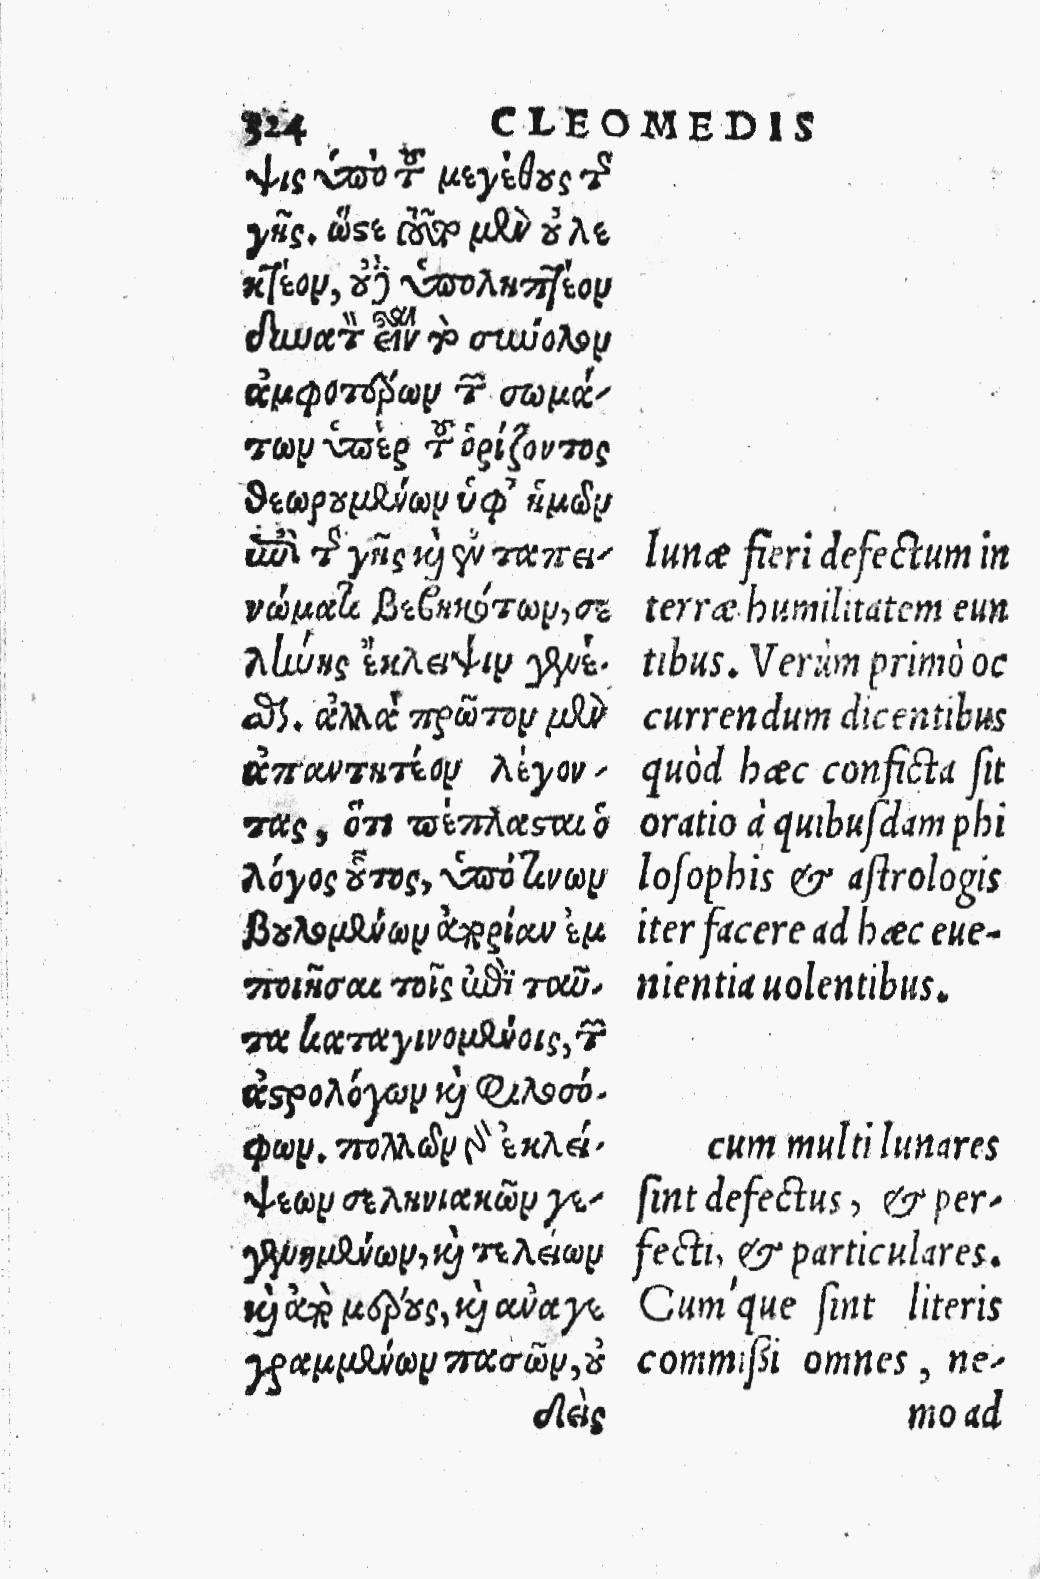 324 CLEOMEDIS
ψις ὑπὸ τοῦ μεγέθους τῆς
γῆς. ὥστε μὲν οὐ λε
κτέον, οὐδὲ ὑποληπτέον
δυνατὸν εἶναι τὸ σύνολον
ἀμφοτέρων τῶν σωμά-
των ὑπὲρ τοῦ ὁρίζοντος
θεωρουμένων ὑφ' ἡμῶν
ἐπὶ τῆς γῆς καὶ ἐν ταπει-
νώματι βεβηκότων, σε
λήνης ἔκλειψιν γενέ-
σθαι. ἀλλὰ πρῶτον μὲν
ἀπαντητέον λέγον-
τας, ὅτι πέπλασται ὁ
λόγος οὗτος, ὑπό τινων
βουλομένων ἀπορίαν ἐμ
ποιῆσαι τοῖς ἐπὶ ταῦ-
τα καταγινομένοις, τῶν
ἀστρολόγων καὶ φιλοσό-
φων. πολλῶν δὲ ἐκλεί-
ψεων σεληνιακῶν γε-
γενημένων, καὶ τελείων
καὶ ἀπὸ μέρους, καὶ ἀναγε
γραμμένων πασῶν, οὐ
δεὶς
lunæ fieri defectum in
terræ humilitatem eun
tibus. Verùm primò oc
currendum dicentibus
quòd hæc conficta ſit
oratio à quibuſdam phi
loſophis & aſtrologis
iter facere ad hæc eue-
nientia uolentibus.
cum multi lunares
ſint defectus, & per-
fecti, & particulares.
Cum'que ſint literis
commiſſi omnes, ne-
mo ad